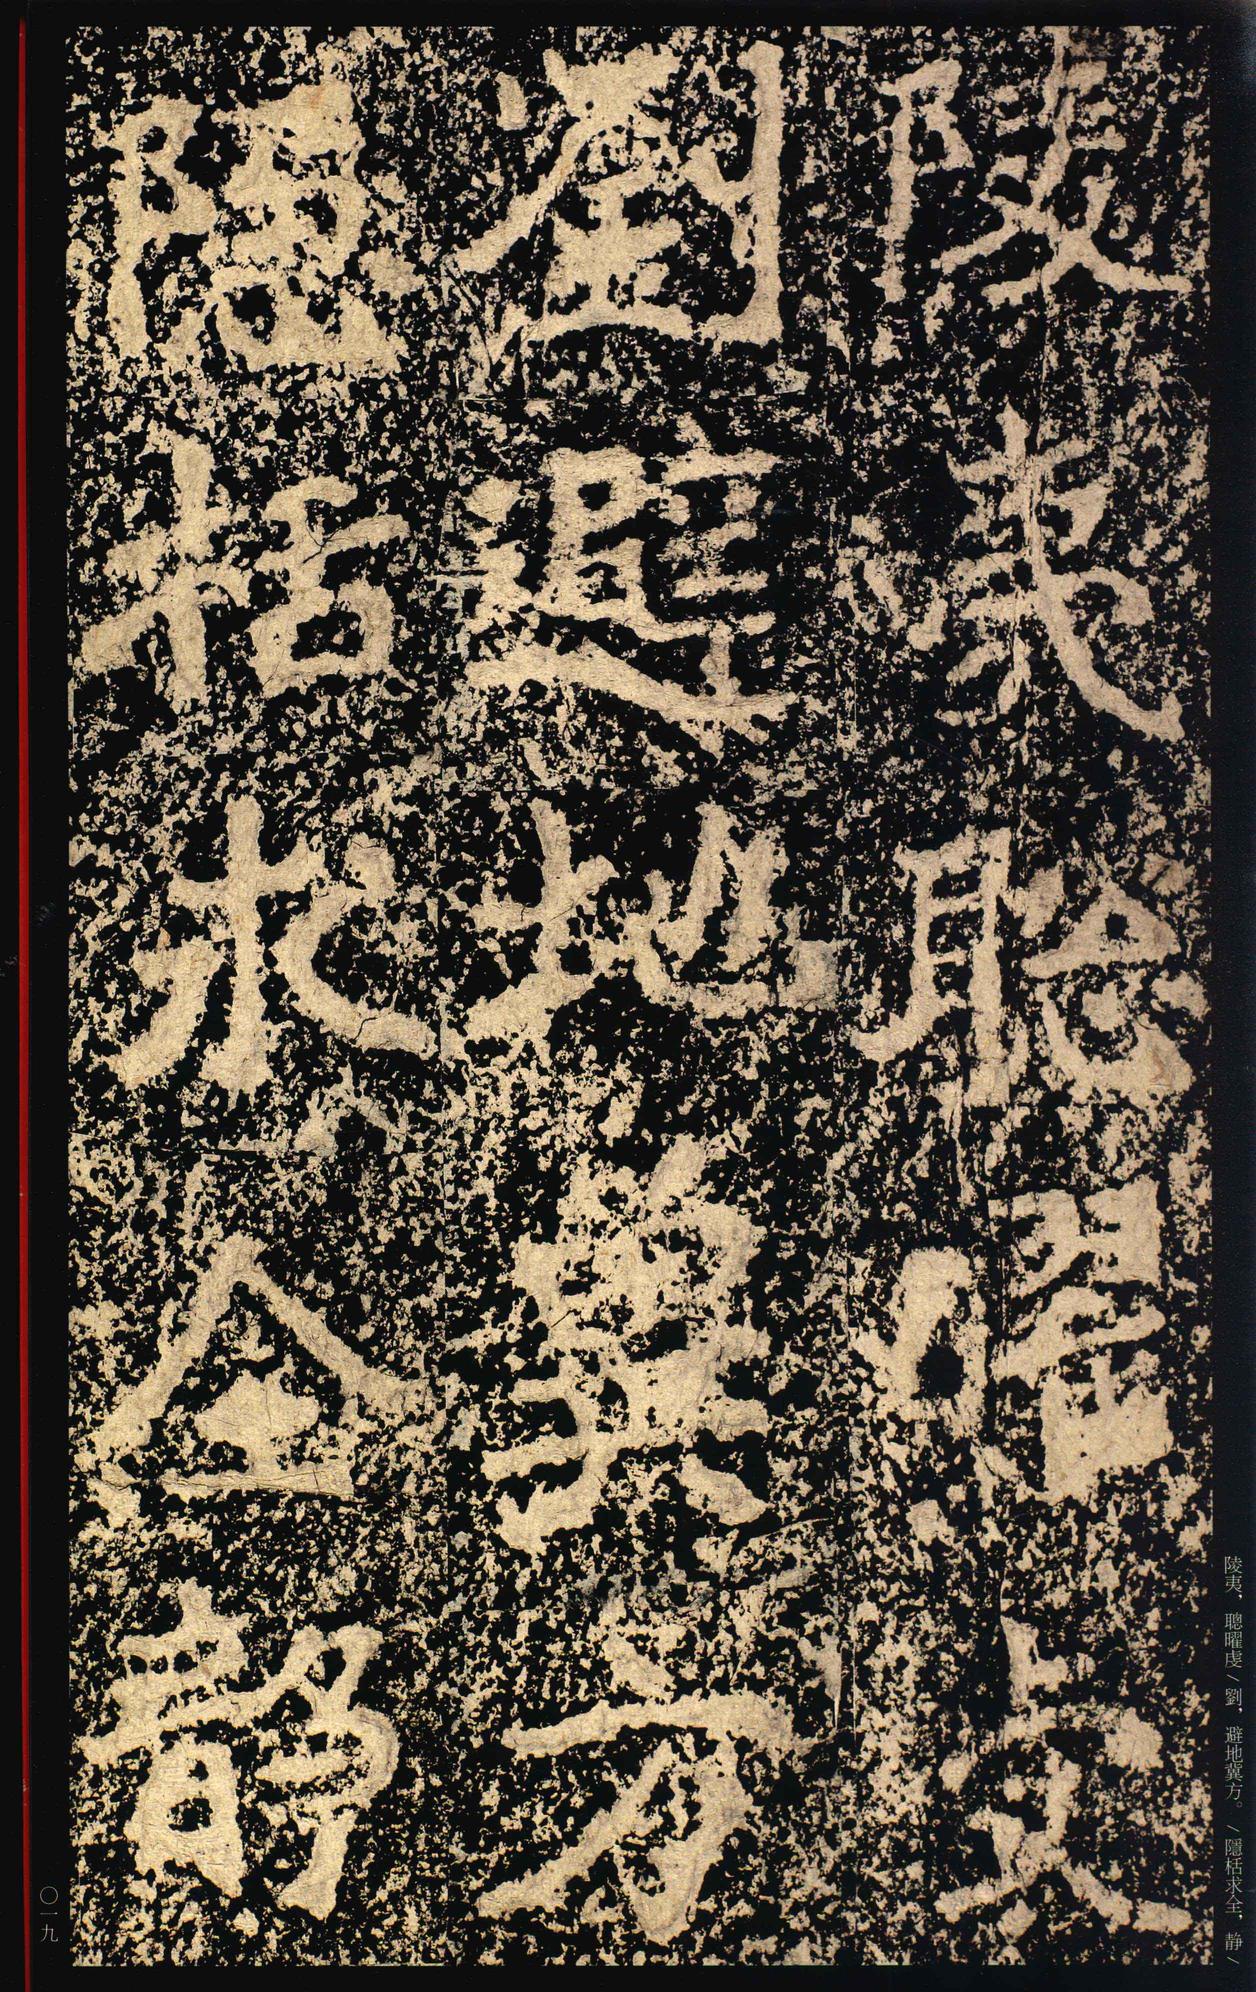 陵夷聰曜虔
劉避地冀方
隱栝求全靜
陵夷，聰曜虔／劉，避地冀方。／隱栝求全，静／
〇一九